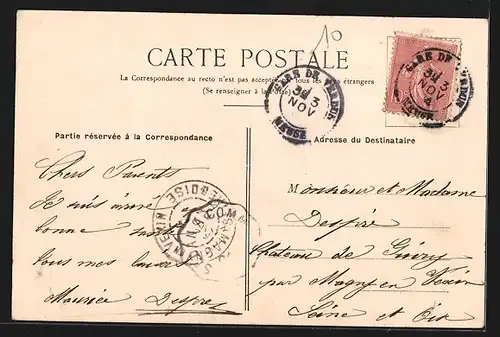 10
CARTE POSTALE
La Correspondance au recto n'est pas acceptée par tous les pays étrangers
(Se renseigner à la Poste)
GARE DE VERDUN
3 NOV
MEUSE
GARE DE VERDUN
3 NOV 4
MEUSE
Partie réservée à la Correspondance
Adresse du Destinataire
Chers Parents
Je suis
bonne santé
tous mes
Maurice
Monsieur et Madame
Château de Guiry
par Magny en Vexin
Seine et Oise